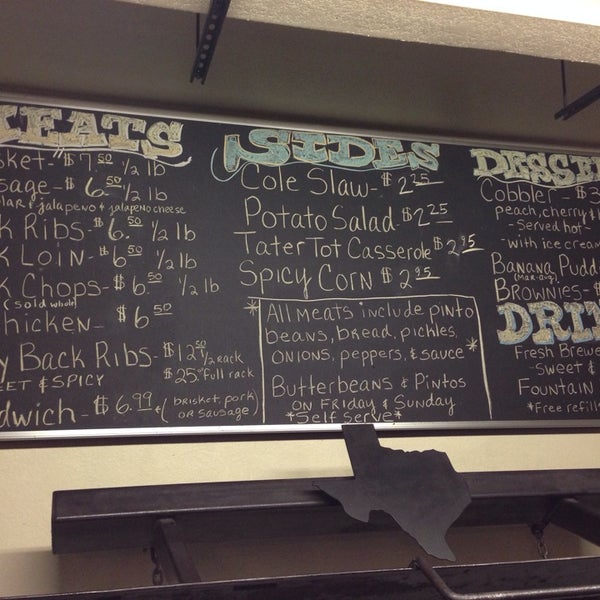 EATS
sket - $7.50 1/2 lb
sage - $6.50 1/2 lb
jalapeno & jalapeno cheese
k Ribs - $6. 1/2 lb
k Loin - $6.50 1/2 lb
k Chops - $6.50 1/2 lb
(sold whole)
hicken - $6.50
y Back Ribs - $12.50 1/2 rack
EET & SPICY $25.00 full rack
dwich - $6.99 * (brisket, pork
or sausage)
SIDES
Cole Slaw - $2.25
Potato Salad - $2.25
Tater Tot Casserole $2.95
Spicy Corn $2.95
*All meats include pinto
beans, bread, pickles,
onions, peppers, & sauce*
Butterbeans & Pintos
on Friday & Sunday
*Self Serve*
DESSE
Cobbler - $3
peach, cherry &
- Served hot -
- with ice cream
Banana Pudd
Brownies - $
DRIN
Fresh Brewe
- sweet &
Fountain
*Free refill